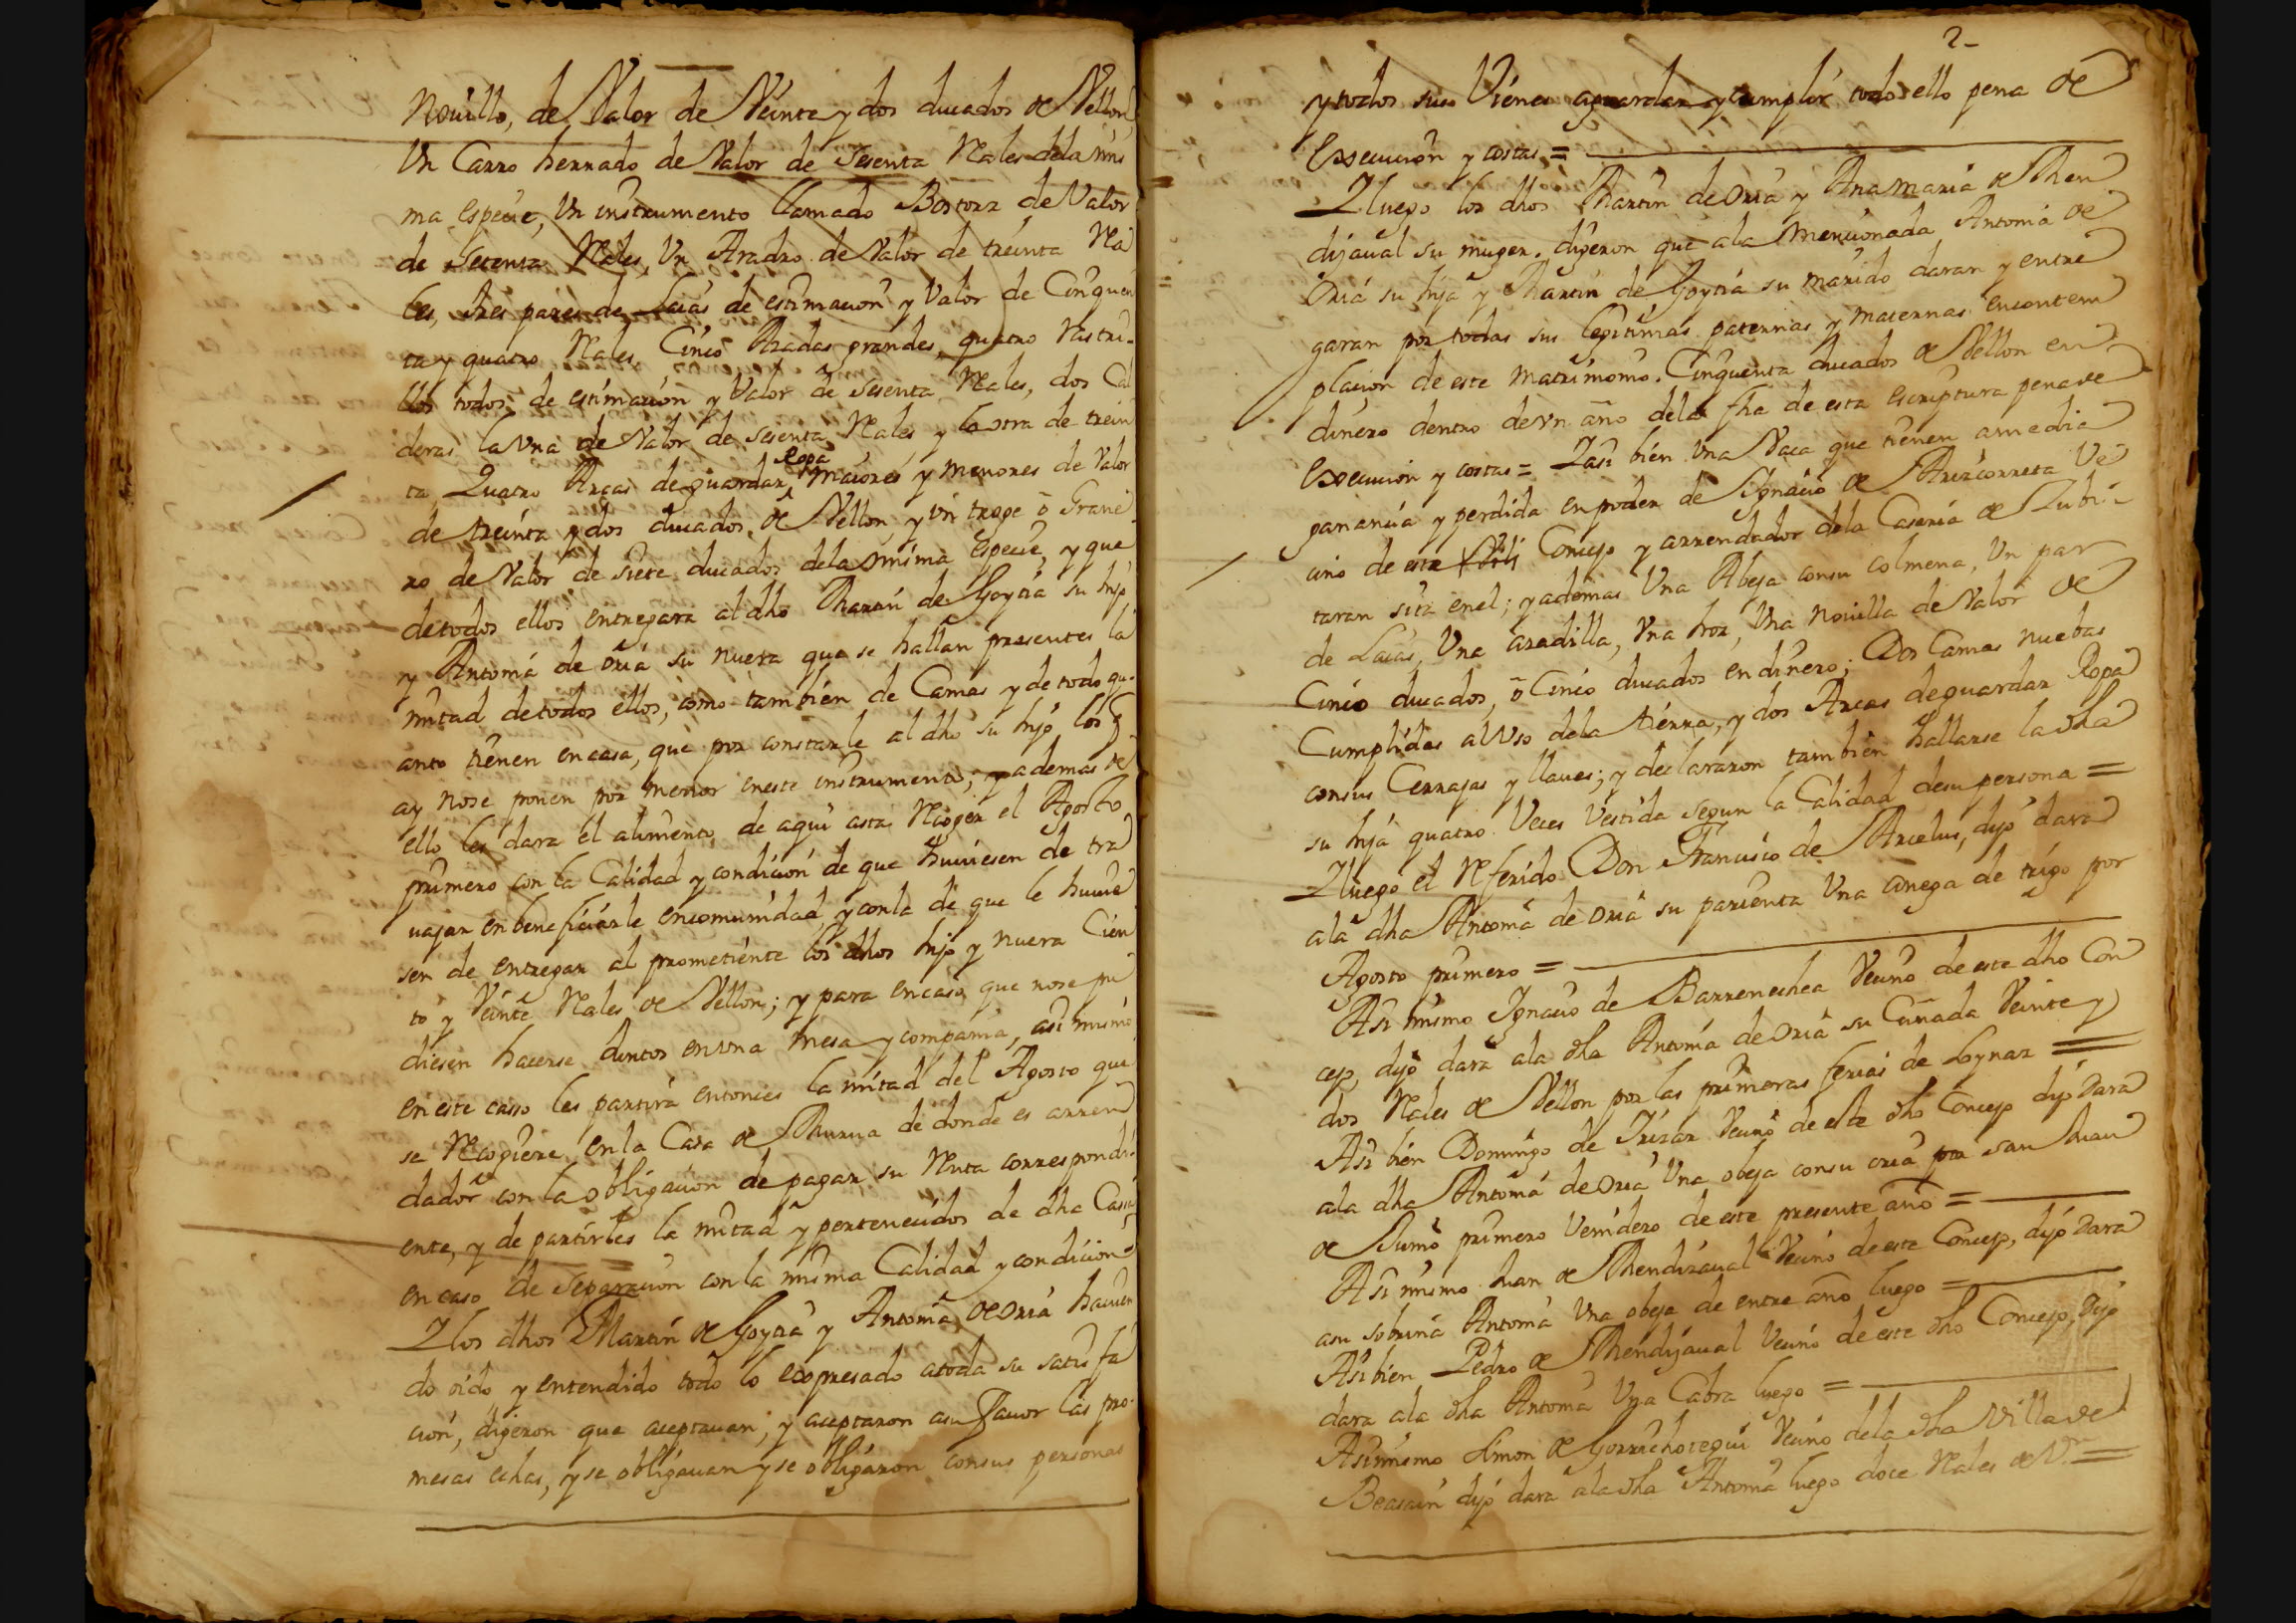 Nouillo, de Valor de Veinte y dos ducados de Vellon,
Un Carro herrado de Valor de sesenta Rales dela mis
ma especie, Un instrumento llamado Bostorz de Valor
de Setenta Rales, Un Aradro de Valor de treinta Ra
les, tres pares de Laias de estimacion y Valor de Cinquen
ta y quatro Rales, Cinco Azadas grandes, quatro rastri-
llos todos de estimacion y Valor de sesenta Rales, dos Cal
deras la Una de Valor de sesenta Rales y la otra de trein
ta, Quatro Arcas de guardar Ropa maiores y menores de Valor
de treinta y dos ducados, de Vellon y vn troge ô Grane-
ro de Valor de siete ducados dela misma especie, y que
de todos ellos entregara al dho Martin de Goytia su hijo
y Antonia de Oria su nuera que se hallan presentes la
mitad de todos ellos, como tambien de Camas y de todo qu-
anto tienen en casa, que por constarle al dho su hijo los q
ay nose ponen por menor eneste instrumento; y ademas de
ello les dara el alimento, de aqui asta Recoger el Agosto
primero con la Calidad y condicion de que huuiesen de tra
uajar en beneficiarle encomunidad, y conla de que le huuie
sen de entregar al prometiente los dhos hijo y nuera Cien
to y Veinte Rales de Vellon; y para encaso, que nose pu
diesen hacerse Juntos en vna mesa y compania, asi mismo
en este casso les partira entonces la mitad del Agosto que
se Recogiere en la Casa de Murua de donde es arren
dador con la obligacion de pagar su Renta correspondi-
ente, y de partirles la mitad y pertenecidos de dha Casa
en caso de separacion con la misma Calidad y condicion =
Y los dhos Martin de Goytia y Antonia de Oria hauien
do oido y entendido todo lo expresado atoda su satisfa
cion, digeron que aceptauan; y aceptaron asu fauor las pro-
mesas echas, y se obligauan y se obligaron consus personas
2-
y todos sus Vienes aguardar y cumplir todo ello pena de
Execucion y costas =
Y luego los dhos Martin de Oria y Ana Maria de Men
dijaual su muger, digeron que ala Mencionada Antonia de
Oria su hija y Martin de Goytia su marido daran y entre
garan por todas sus legitimas paternas y maternas encontem
placion de este matrimonio. Cinquenta ducados de Vellon en
dinero dentro de vn año dela fha de esta escriptura pena de
Execucion y costas = Y asi bien Una Vaca que tienen amedia
ganancia y perdida en poder de Ignacio de Arizcorreta Ve
cino de este Concejo y arrendador dela Caseria de Zubi-
taran sita enel; y ademas Una Abeja consu colmena, Un par
de Laias, Una azadilla, Una hoz, Una nouilla de Valor de
Cinco ducados, ô Cinco ducados en dinero; Dos Camas nuebas
Cumplidas al Vso dela tierra, y dos Arcas de guardar Ropa
consus Cerrajas y llaues; y declararon tambien hallarse la dha
su hija quatro Veces Vestida segun la Calidad desu persona =
Y luego el Referido Don Francisco de Arcelus, dijo dara
ala dha Antonia de Oria su parienta Una anega de trigo por
Agosto primero =
Asi mismo Ignacio de Barrenechea Vecino de este dho Con
cejo, dijo dara ala dha Antonia de Oria su Cuñada Veinte y
dos Rales de Vellon por las primeras ferias de Loynaz =
Asi bien Domingo de Irizar Vecino de este dho Concejo dijo dara
ala dha Antonia de Oria Una obeja consu cria por san Juan
de Junio primero Venidero de este presente año =
Asi mismo Juan de Mendizaual Vecino de este Concejo, dijo dara
asu sobrina Antonia Una obeja de entre año luego =
Asi bien Pedro de Mendijaual Vecino de este dho Concejo, dijo
dara ala dha Antonia Una Cabra luego =
Asi mismo Simon de Gorrochotegui Vecino dela dha Villa de
Beasain dijo dara ala dha Antonia luego doce Rales de Vn =